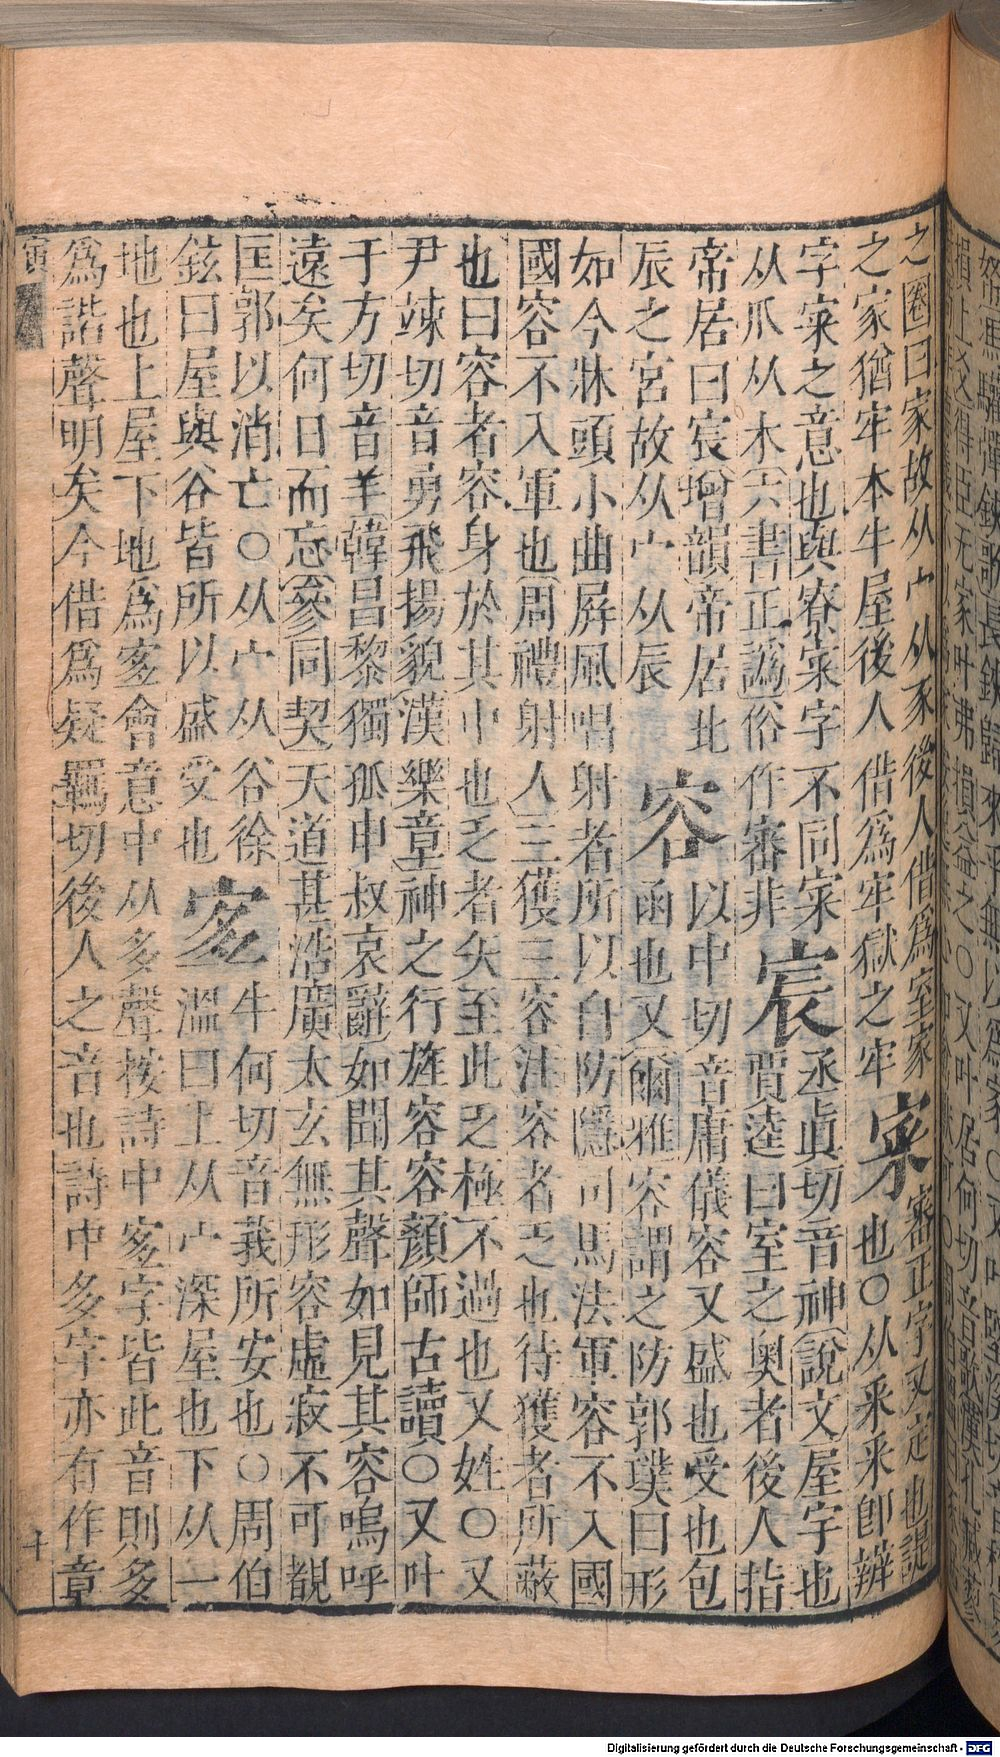 之圈曰家故从宀从豕後人借爲室家
之家猶牢本牛屋後人借爲牢獄之牢 寀 審正字又定也諟也〇从釆釆卽辨
字寀之意也與寮寀字不同寀 丞眞切音神說文屋宇也
从爪从木六書正譌俗作審非 宸 賈逵曰室之奧者後人指
帝居曰宸增韻帝居北 以中切音庸儀容又盛也受也包
辰之宮故从宀从辰 容 函也又爾雅容謂之防郭璞曰形
如今牀頭小曲屛風唱射者所以自防隱司馬法軍容不入國
國容不入軍也周禮射人三獲三容注容者乏也待獲者所蔽
也曰容者容身於其中也乏者矢至此乏極不過也又姓〇又
尹竦切音勇飛揚貌漢樂章神之行旌容容顏師古讀〇又叶
于方切音羊韓昌黎獨孤申叔哀辭如聞其聲如見其容嗚呼
遠矣何日而忘參同契天道甚浩廣太玄無形容虛寂不可覩
匡郭以消亡〇从宀从谷徐 牛何切音莪所安也〇周伯
鉉曰屋與谷皆所以盛受也 宐 溫曰上从宀深屋也下从一
地也上屋下地爲宐會意中从多聲按詩中宐字皆此音則多
爲諧聲明矣今借爲疑羈切後人之音也詩中多字亦有作章
寅 十
Digitalisierung gefördert durch die Deutsche Forschungsgemeinschaft - DFG